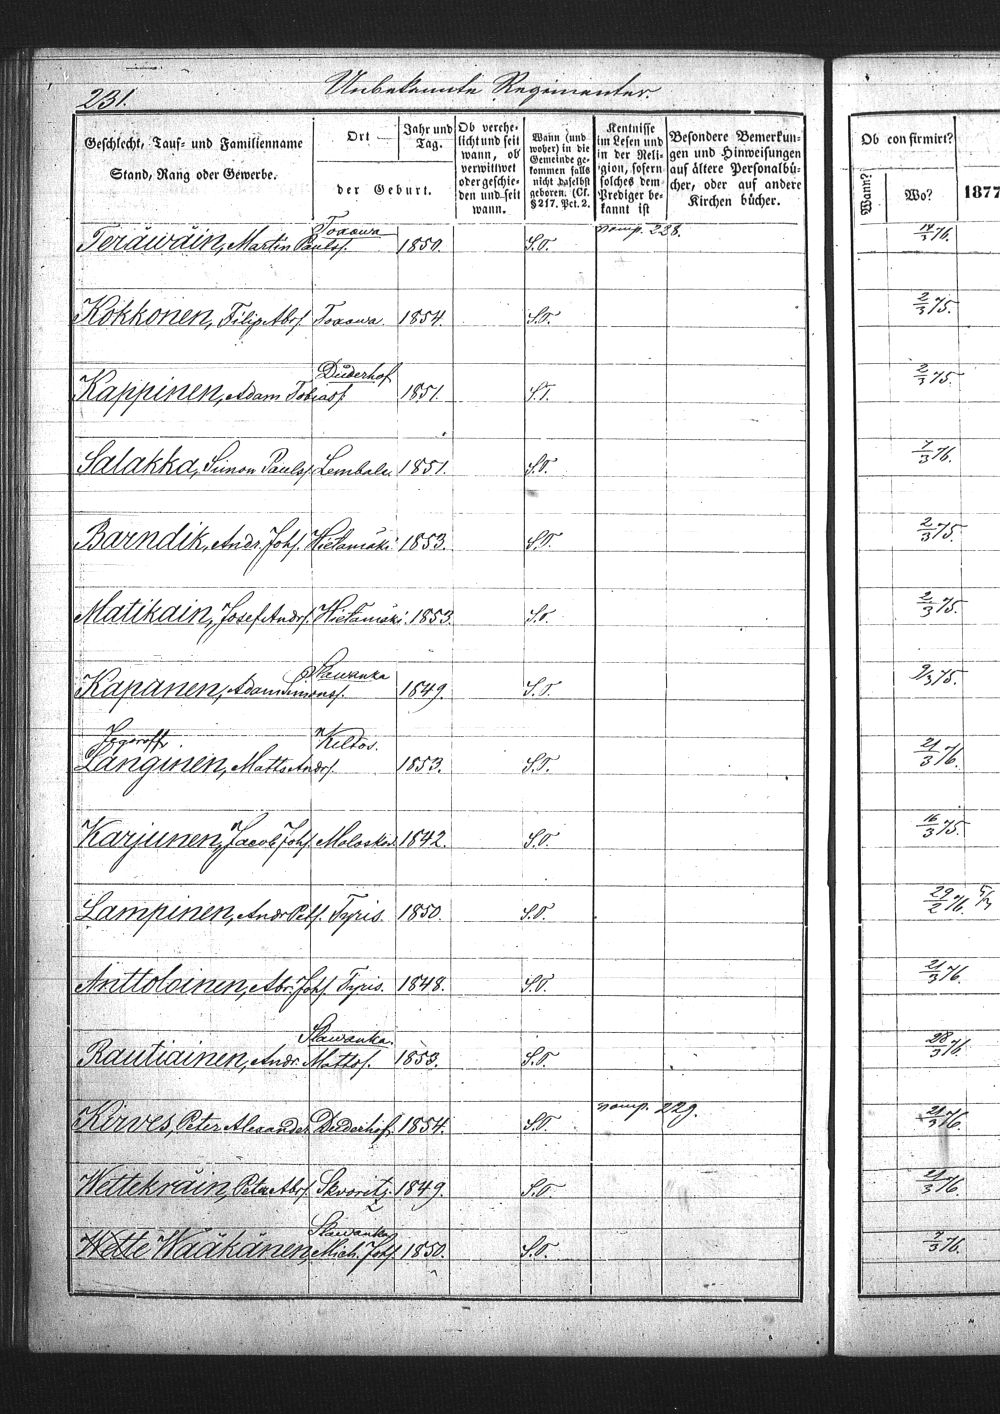 231. Unbekannte Regimenter.
Geschlecht, Tauf- und Familienname
Stand, Rang oder Gewerbe.
Ort
der Geburt.
Jahr und
Tag.
Ob verehe-
licht und seit
wann, ob
verwittwet
oder geschie-
den und seit
wann.
Wann (und
woher) in die
Gemeinde ge-
kommen falls
nicht daselbst
geboren. (Cf.
§ 217. Pct. 2.
Kentnisse
im Lesen und
in der Reli-
gion, sofern
solches dem
Prediger be-
kannt ist
Besondere Bemerkun-
gen und Hinweisungen
auf ältere Personalbü-
cher, oder auf andere
Kirchen bücher.
Ob confirmirt?
Wann?
Wo?
1877
Teräwäin, Martin Paulsf. Toxowa 1850. S.T. 228. 14/3 76.
Kokkonen, Filip Abrf. Toxowa. 1854. S.T. 2/3 75.
Kappinen, Adam Tobiasf. Duderhof 1851. S.T. 2/3 75.
Salakka, Simon Paulsf. Lembala. 1851. S.T. 7/3 76.
Barndik, Andr. Johf. Hietamäki 1853. S.T. 2/3 75.
Matikain, Josef Andrf. Hietamäki. 1853. S.T. 2/3 75.
Kapanen, Adam Simonsf. Slawanka 1849. S.T. 9/3 75.
Jegoroff
Langinen, Matts Andrf. Keltos. 1853. S.T. 21/3 76.
Karjunen, Jacob Johf. Moloskow. 1842. S.T. 16/3 75.
Lampinen, Andr Petf. Tyris. 1850. S.T. 29/2 76. 5/3
Anttolainen, Abr. Johf. Tyris. 1848. S.T. 21/3 76.
Rautiainen, Andr. Mattsf. Slawanka. 1853. S.T. 28/3 76.
Kirves, Peter Alexander Duderhof. 1854. S.T. 229. 21/3 76.
Wettekräin, Peter Abrf. Skvoritz. 1849. S.T. 21/3 76.
Wette Wääkänen, Mich. Johf. Slawanka 1850. S.T. 7/3 76.